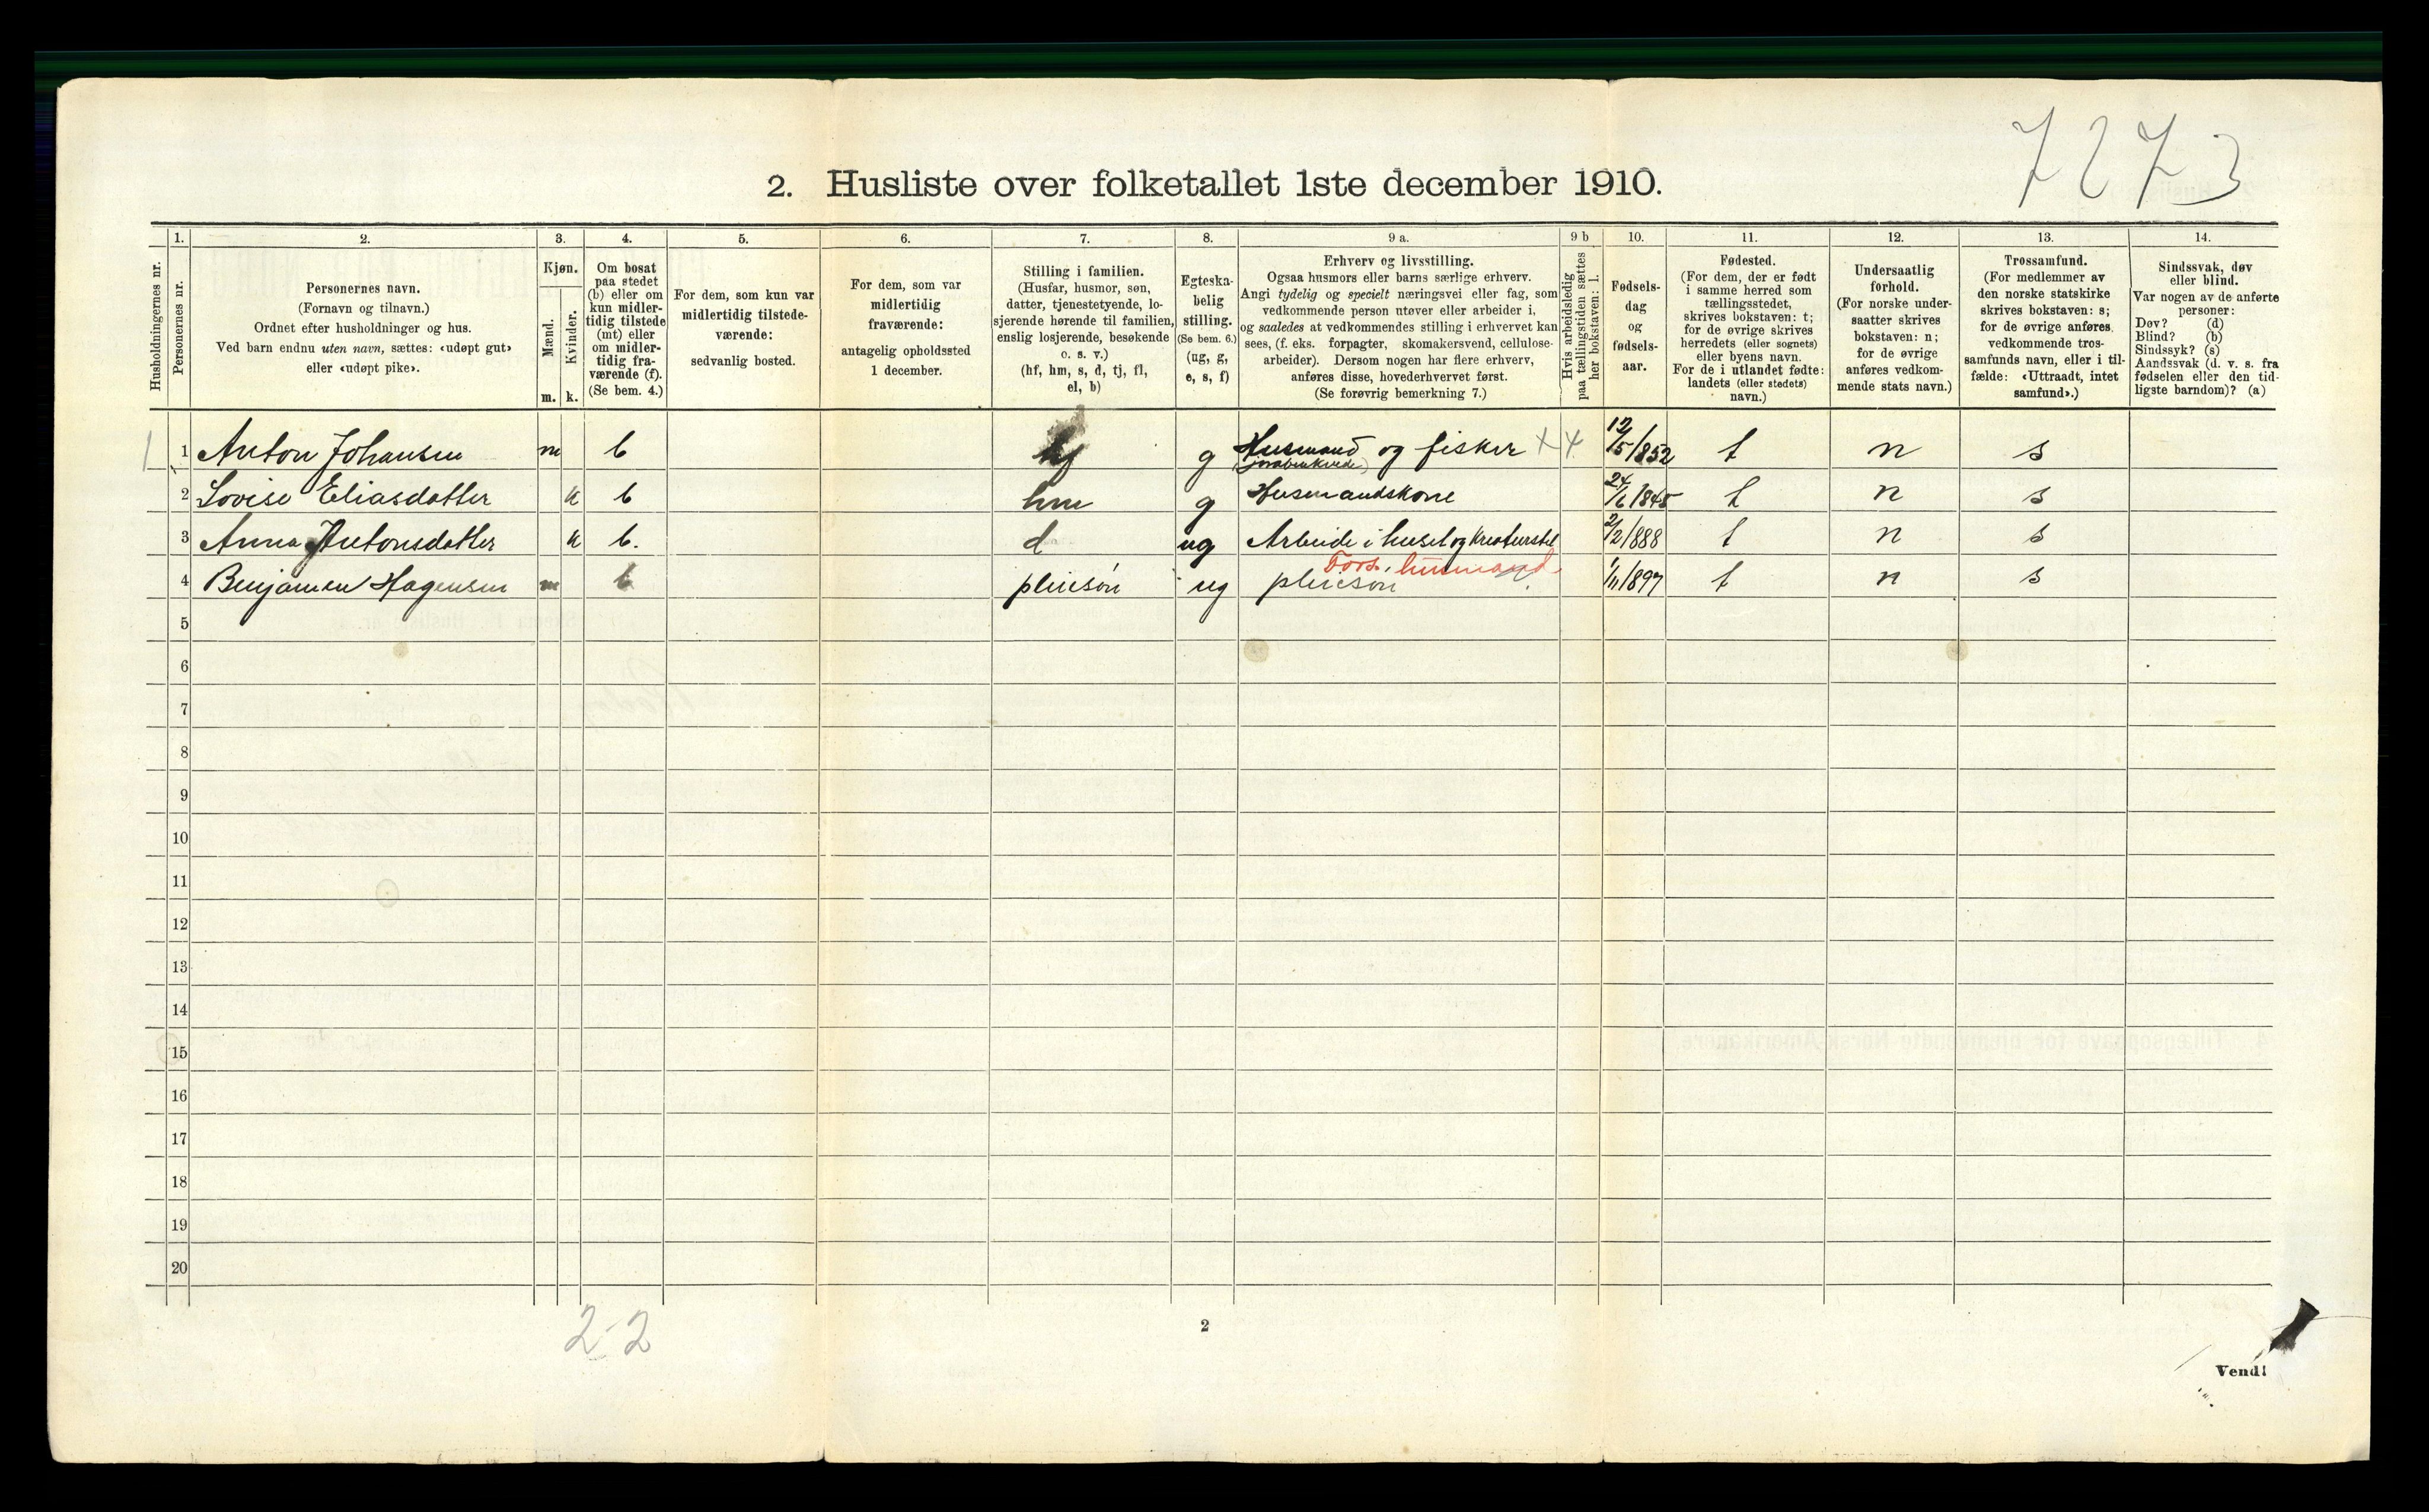 7273
2. Husliste over folketallet 1ste december 1910.
1. 2. 3. 4. 5. 6. 7. 8. 9 a. 9 b 10. 11. 12. 13. 14.
Husholdningernes nr.
Personernes nr.
Personernes navn.
(Fornavn og tilnavn.)
Ordnet efter husholdninger og hus.
Ved barn endnu uten navn, sættes: «udøpt gut»
eller «udøpt pike».
Kjøn.
Mænd.
Kvinder.
m. k.
Om bosat
paa stedet
(b) eller om
kun midler-
tidig tilstede
(mt) eller
om midler-
tidig fra-
værende (f).
(Se bem. 4.)
For dem, som kun var
midlertidig tilstede-
værende:
sedvanlig bosted.
For dem, som var
midlertidig
fraværende:
antagelig opholdssted
1 december.
Stilling i familien.
(Husfar, husmor, søn,
datter, tjenestetyende, lo-
sjerende hørende til familien,
enslig losjerende, besøkende
o. s. v.)
(hf, hm, s, d, tj, fl,
el, b)
Egteska-
belig
stilling.
(Se bem. 6.)
(ug, g,
e, s, f)
Erhverv og livsstilling.
Ogsaa husmors eller barns særlige erhverv.
Angi tydelig og specielt næringsvei eller fag, som
vedkommende person utøver eller arbeider i,
og saaledes at vedkommendes stilling i erhvervet kan
sees, (f. eks. forpagter, skomakersvend, cellulose-
arbeider). Dersom nogen har flere erhverv,
anføres disse, hovederhvervet først.
(Se forøvrig bemerkning 7.)
Hvis arbeidsledig
paa tællingstiden sættes
her bokstaven: l.
Fødsels-
dag
og
fødsels-
aar.
Fødested.
(For dem, der er født
i samme herred som
tællingsstedet,
skrives bokstaven: t;
for de øvrige skrives
herredets (eller sognets)
eller byens navn.
For de i utlandet fødte:
landets (eller stedets)
navn.)
Undersaatlig
forhold.
(For norske under-
saatter skrives
bokstaven: n;
for de øvrige
anføres vedkom-
mende stats navn.)
Trossamfund.
(For medlemmer av
den norske statskirke
skrives bokstaven: s;
for de øvrige anføres
vedkommende tros-
samfunds navn, eller i til-
fælde: «Uttraadt, intet
samfund».)
Sindssvak, døv
eller blind.
Var nogen av de anførte
personer:
Døv? (d)
Blind? (b)
Sindssyk? (s)
Aandssvak (d. v. s. fra
fødselen eller den tid-
ligste barndom)? (a)
1 1 Anton Johansen m b hf g Husmand og fisker 12/5/1852 t n s
(jordbrukende)
2 Lovise Eliasdatter k b hm g Husmandskone 24/6/1845 t n s
3 Anna Antonsdatter k b. d ug Arbeide i huset og kreaturstel 2/2/888 t n s
Fors. husmand
4 Benjamin Hagensen m b pleiesøn ug pleiesøn 1/11/897 t n s
5
6
7
8
9
10
11
12
13
14
15
16
17
18
19
20
2-2
2
Vend!